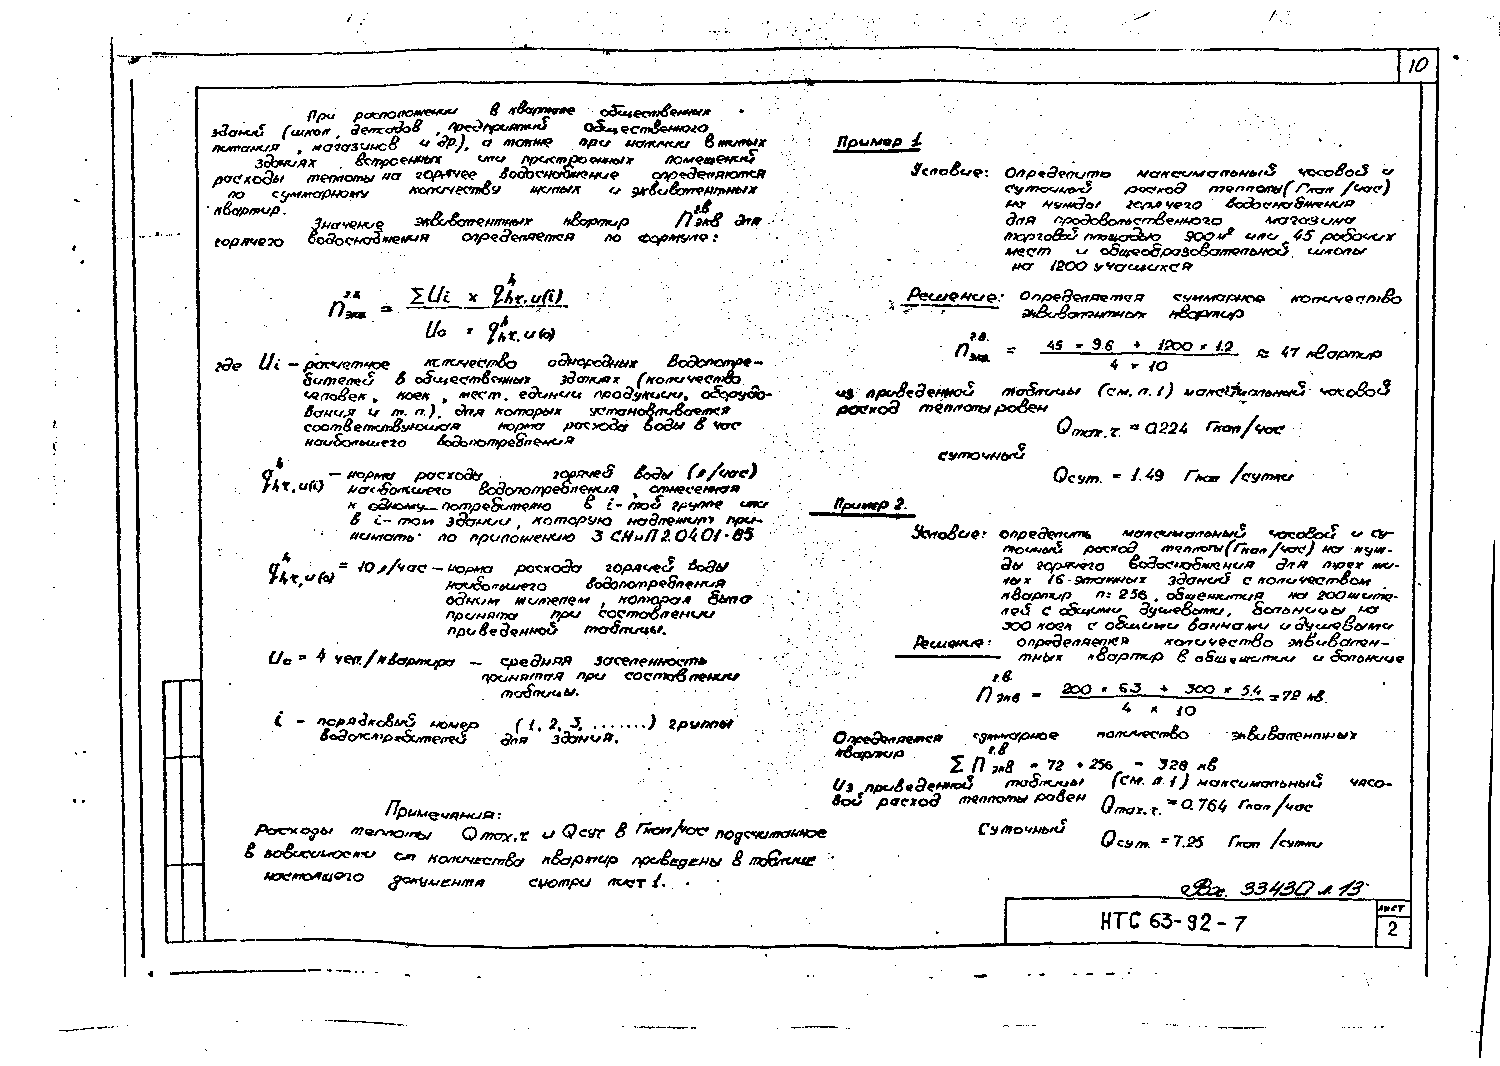 10
При расположении в квартале общественных
зданий (школ, детсадов, предприятий общественного
питания, магазинов и др.), а также при наличии в жилых
зданиях встроенных или пристроенных помещений
расходы теплоты на горячее водоснабжение определяются
по суммарному количеству жилых и эквивалентных
квартир.
Значение эквивалентных квартир П г.в экв для
горячего водоснабжения определяется по формуле:
П г.в. экв = ΣUi × q h hr,u(i) / Uo × q h hr,u(o)
где Ui – расчетное количество однородных водопотре-
бителей в общественных зданиях (количество
человек, коек, мест, единиц продукции, оборудо-
вания и т.п.), для которых устанавливается
соответствующая норма расхода воды в час
наибольшего водопотребления
q h hr,u(i) – норма расхода горячей воды (л/час)
наибольшего водопотребления, отнесенная
к одному потребителю в i-той группе или
в i-том здании, которую надлежит при-
нимать по приложению 3 СНиП 2.04.01-85
q h hr,u(o) = 10 л/час – норма расхода горячей воды
наибольшего водопотребления
одним жителем, которая была
принята при составлении
приведенной таблицы.
Uo = 4 чел./квартира – средняя заселенность
принятая при составлении
таблицы.
i – порядковый номер (1, 2, 3, .......) группы
водопотребителей для здания.
Примечания:
Расходы теплоты Qmax.т и Qсут в Гкал/час подсчитанное
в зависимости от количества квартир приведены в таблице
настоящего документа смотри лист 1.
Пример 1
Условие: Определить максимальный часовой и
суточный расход теплоты (Гкал/час)
на нужды горячего водоснабжения
для продовольственного магазина
торговой площадью 900 м² или 45 рабочих
мест и общеобразовательной школы
на 1200 учащихся
Решение: Определяется суммарное количество
эквивалентных квартир
П г.в. экв. = 45 × 9.6 + 1200 × 1.2 / 4 × 10 ≈ 47 квартир
из приведенной таблицы (см. л. 1) максимальный часовой
расход теплоты равен
Qmax.т. = 0.224 Гкал/час
суточный
Qсут. = 1.49 Гкал/сутки
Пример 2.
Условие: определить максимальный часовой и су-
точный расход теплоты (Гкал/час) на нуж-
ды горячего водоснабжения для трех жи-
лых 16-этажных зданий с количеством
квартир n = 256, общежития на 200 жите-
лей с общими душевыми, больницы на
300 коек с общими ваннами и душевыми
Решение: определяется количество эквивален-
тных квартир в общежитии и больнице
П г.в. экв = 200 × 6.3 + 300 × 5.4 / 4 × 10 = 72 кв.
Определяется суммарное количество эквивалентных
квартир
Σ П г.в экв = 72 + 256 = 328 кв
Из приведенной таблицы (см. л. 1) максимальный часо-
вой расход теплоты равен Qmax.т. = 0.764 Гкал/час
Суточный
Qсут. = 7.25 Гкал/сутки
Вх. 33430 л 13
НТС 63-92-7
лист
2